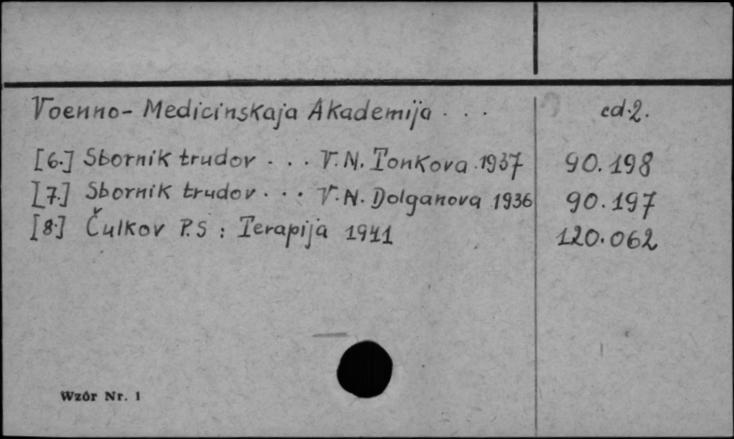 Voenno-Medicinskaja Akademija . . . cd.2.
[6.] Sbornik trudov . . . V.N. Tonkova 1937 90.198
[7.] Sbornik trudov . . . V.N. Dolganova 1936 90.197
[8.] Čulkov P.S : Terapija 1941 120.062
Wzór Nr. 1